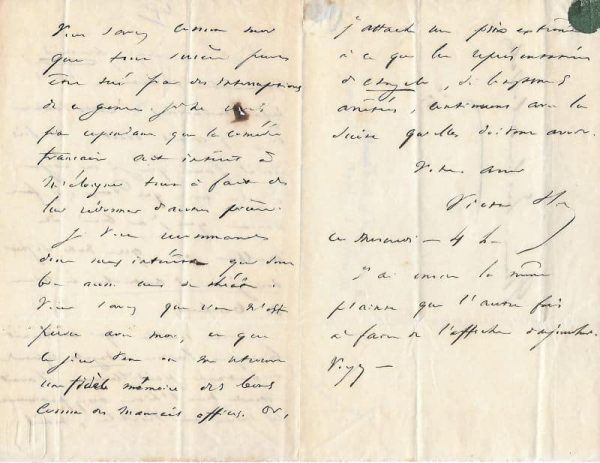 Vous savez comme moi
que tout succès peut
être tué par des interruptions
de ce genre. Je ne crois
pas cependant que la comédie
française ait intérêt à
m'éloigner tout à fait de
lui redonner d'autres pièces.
Je vous recommande
donc mes intérêts qui sont
bien aussi ceux du théâtre.
Vous savez que rien n'est
perdu avec moi, et que
le jour venu on me retrouve
une fidèle mémoire des bons
comme des mauvais offices. Or,
j'attache un prix extrême
à ce que les représentations
d'Angelo, si
arrêtées, continuent avec la
suite qu'elles doivent avoir.
Votre ami
Victor H
ce mercredi - 4 h
J'ai encore la même
plainte que l'autre fois
à faire de l'affiche d'aujourd'hui.
Voyez -